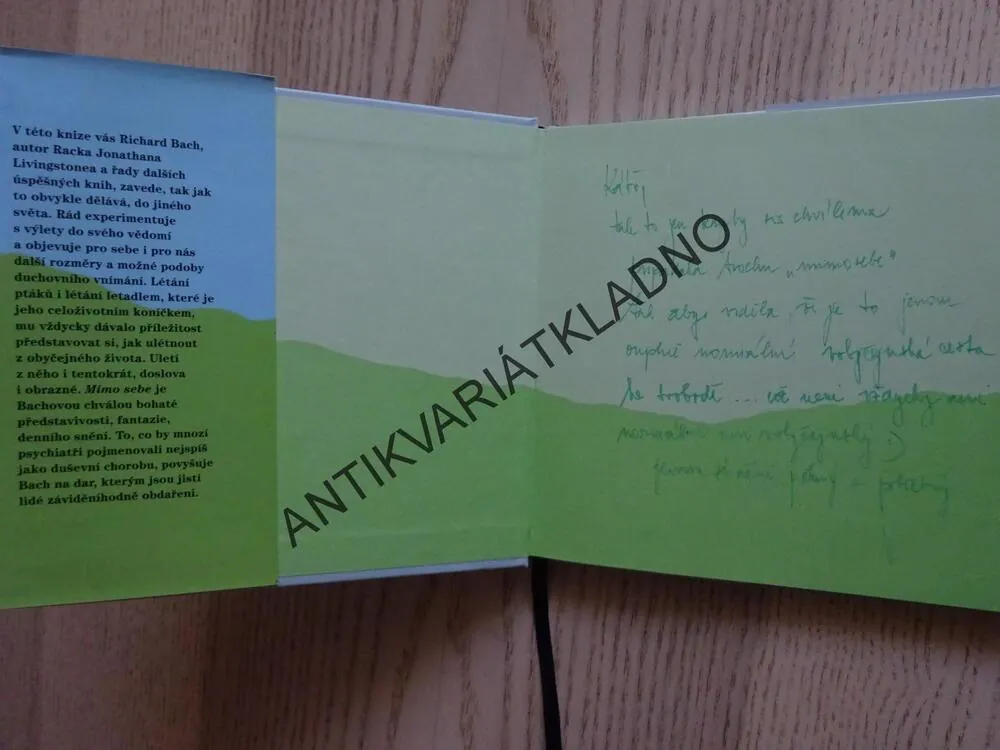 V této knize vás Richard Bach,
autor Racka Jonathana
Livingstonea a řady dalších
úspěšných knih, zavede, tak jak
to obvykle dělává, do jiného
světa. Rád experimentuje
s výlety do svého vědomí
a objevuje pro sebe i pro nás
další rozměry a možné podoby
duchovního vnímání. Létání
ptáků i létání letadlem, které je
jeho celoživotním koníčkem,
mu vždycky dávalo příležitost
představovat si, jak ulétnout
z obyčejného života. Uletí
z něho i tentokrát, doslova
i obrazně. Mimo sebe je
Bachovou chválou bohaté
představivosti, fantazie,
denního snění. To, co by mnozí
psychiatři pojmenovali nejspíš
jako duševní chorobu, povyšuje
Bach na dar, kterým jsou jistí
lidé záviděníhodně obdařeni.
ANTIKVARIÁTKLADNO
tak to jen na chvilinku
trochu „mimo sebe"
viděla, či je to jenom
normální cesta
... což není vždycky není
normální
jenom a